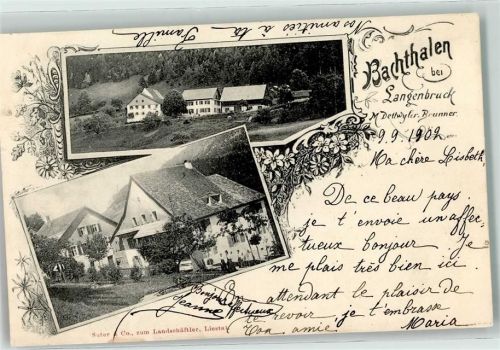 Nos amitiés à ta
famille
Bachthalen
bei
Langenbruck
M. Dettwyler-Brunner.
9.9.1902
Ma chère Lisbeth,
De ce beau pays
je t'envoie un affec-
tueux bonjour. Je
me plais très bien ici.
En attendant le plaisir de
te revoir, je t'embrasse
Ton amie Maria
Jeanne
Suter & Co., zum Landschäftler, Liestal